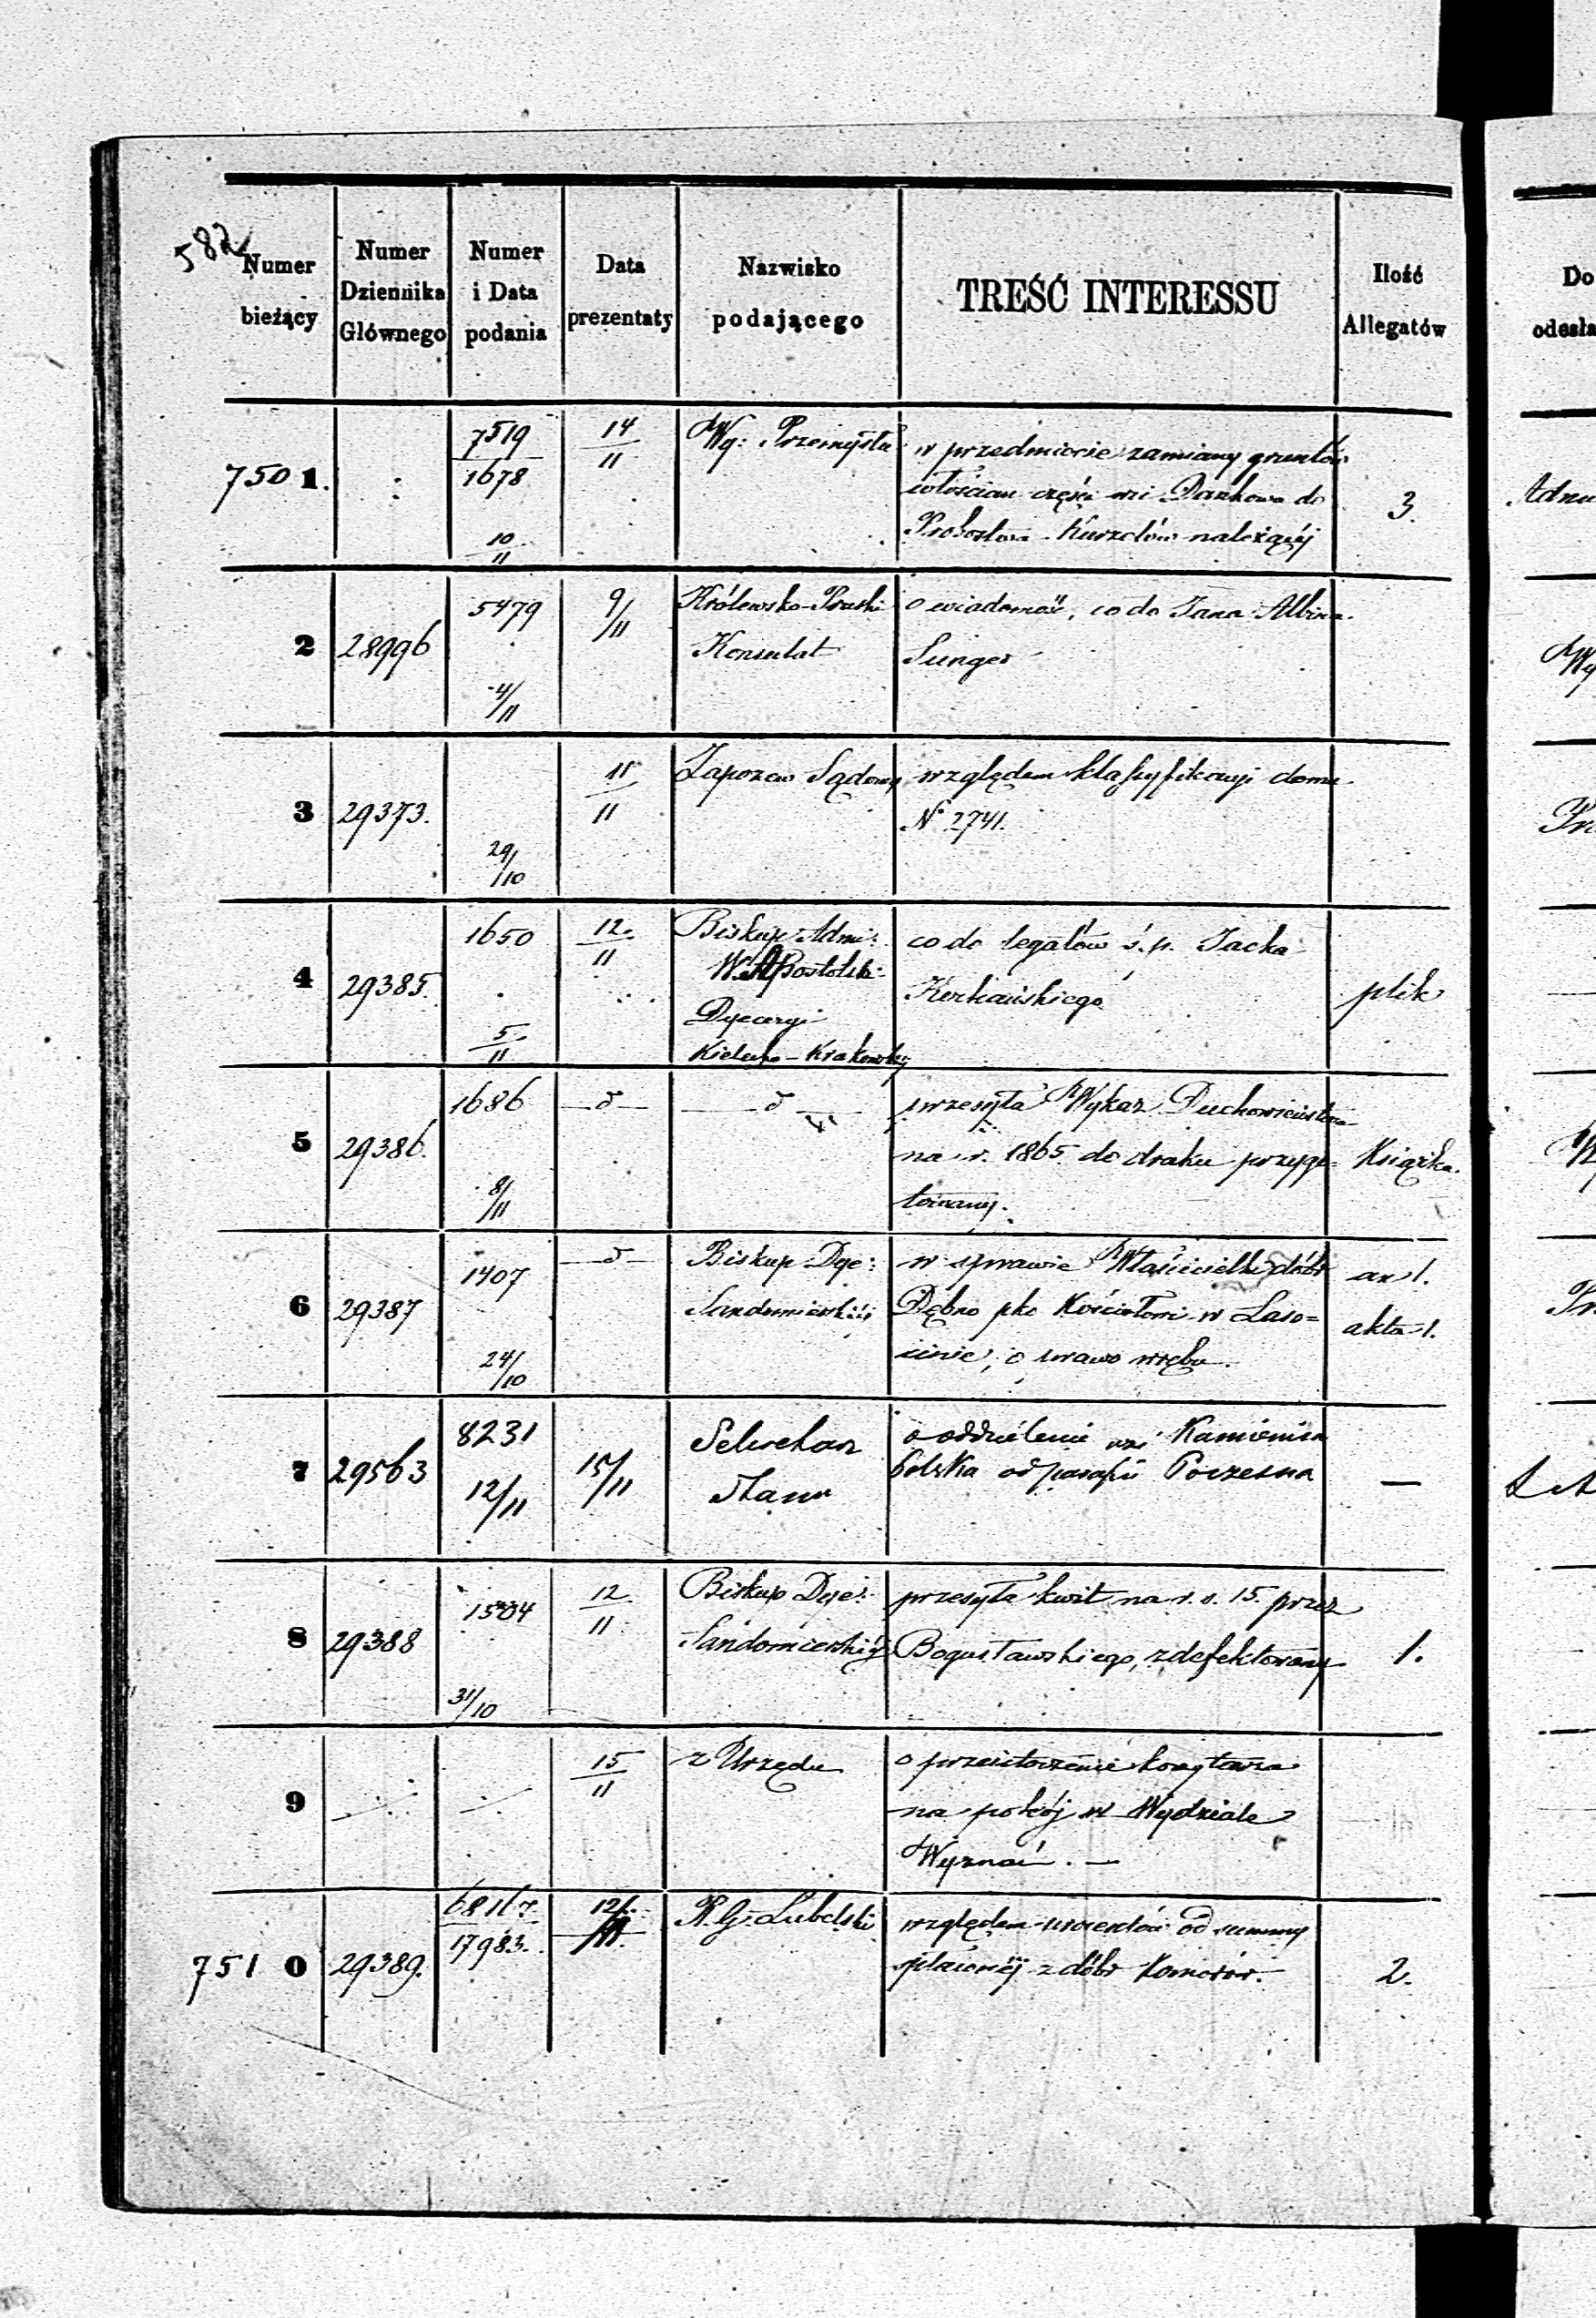 582
Numer bieżący
Numer Dziennika Głównego
Numer i Data podania
Data prezentaty
Nazwisko podającego
TREŚĆ INTERESSU
Ilość Allegatów
Do
odesła
7501.
7519
1678
10/11
14/11
Wy: Przemysłu
w przedmiocie zamiany gruntów
włościan części wsi Dankowa do
Probostwa Kurzelów należącéj
3.
2
28996
5479
4/11
9/11
Królewsko-Pruski
Konsulat
o wiadomość, co do Jana Albina
Sunger
3
29373.
29/10
11/11
Zapozew Sądowy
względem klassyfikacyi domu
No 2741.
4
29385.
1650
5/11
12/11
Biskup Admi:
W. Apostolsk:
Dyecezyi
Kielecko-Krakowskiéj
co do legatów ś.p. Jacka
plik
5
29386.
1686
8/11
—d—
—d—
przesyła Wykaz Duchowieństwa
na r. 1865 do druku przygo-
towany.
Książka.
6
29387
1407
24/10
—d—
Biskup Dye:
Sandomierskiéj
w sprawie Właścicielki dóbr
Dębno pko Kościołowi w Laso=
cinie, o prawo wrębu.
an 1.
akta 1.
7
29563
8231
12/11
15/11
Sekretarz
Stanu
o oddzielenie wsi Kamienica
Polska od parafii Poczesna
—
8
29388
1504
31/10
12/11
Biskup Dye:
Sandomierskiéj
przesyła kwit na r. s. 15. przez
Bogusławskiego, zdefektowany
1.
9
15/11
z Urzędu
o przeistoczenie korytarza
na pokój w Wydziale
Wyznań. —
7510
29389.
68167.
17983.
12/11.
R. G. Lubelski
względem procentów od summy
z dóbr Komorów.
2.